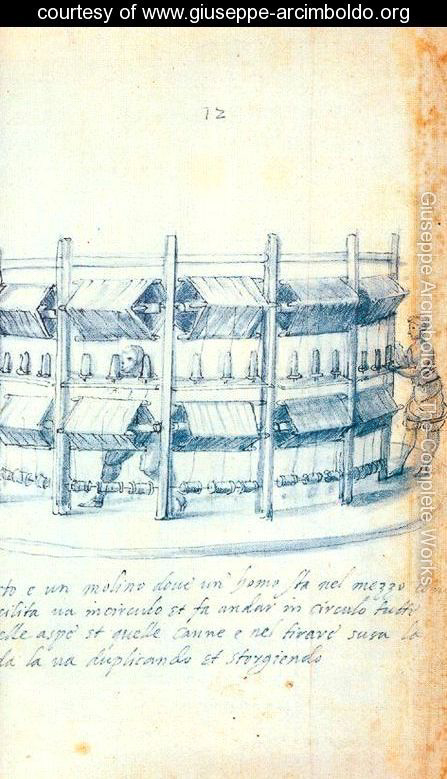 courtesy of www.giuseppe-arcimboldo.org
12
Giuseppe Arcimboldo The Complete Works
to e un molino doue un homo sta nel mezzo con
cilita ua incirculo et fa andar in circulo tutti
elle aspe et quelle canne e nel tirare susa la
da la ua duplicando et storgiendo